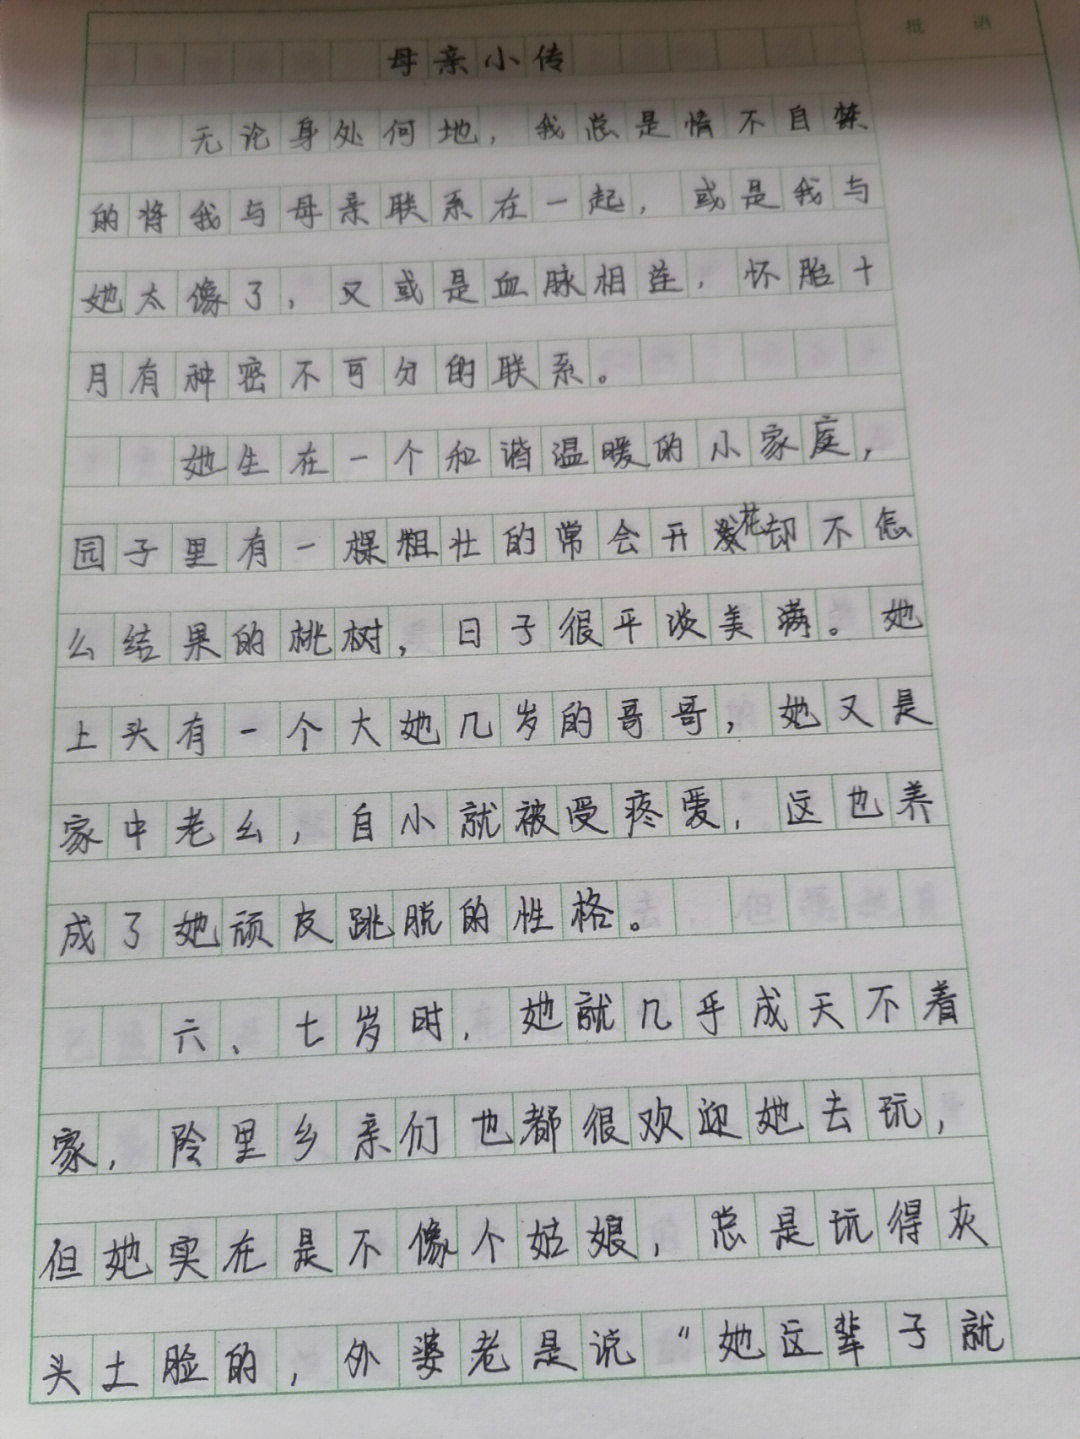 批 语
母亲小传
无论身处何地，我总是情不自禁
的将我与母亲联系在一起，或是我与
她太像了，又或是血脉相连，怀胎十
月有种密不可分的联系。
她生在一个和谐温暖的小家庭，
园子里有一棵粗壮的常会开花却不怎
么结果的桃树，日子很平淡美满。她
上头有一个大她几岁的哥哥，她又是
家中老幺，自小就被受疼爱，这也养
成了她顽皮跳脱的性格。
六、七岁时，她就几乎成天不着
家，里乡亲们也都很欢迎她去玩，
但她实在是不像个姑娘，总是玩得灰
头土脸的，外婆老是说“她这辈子就